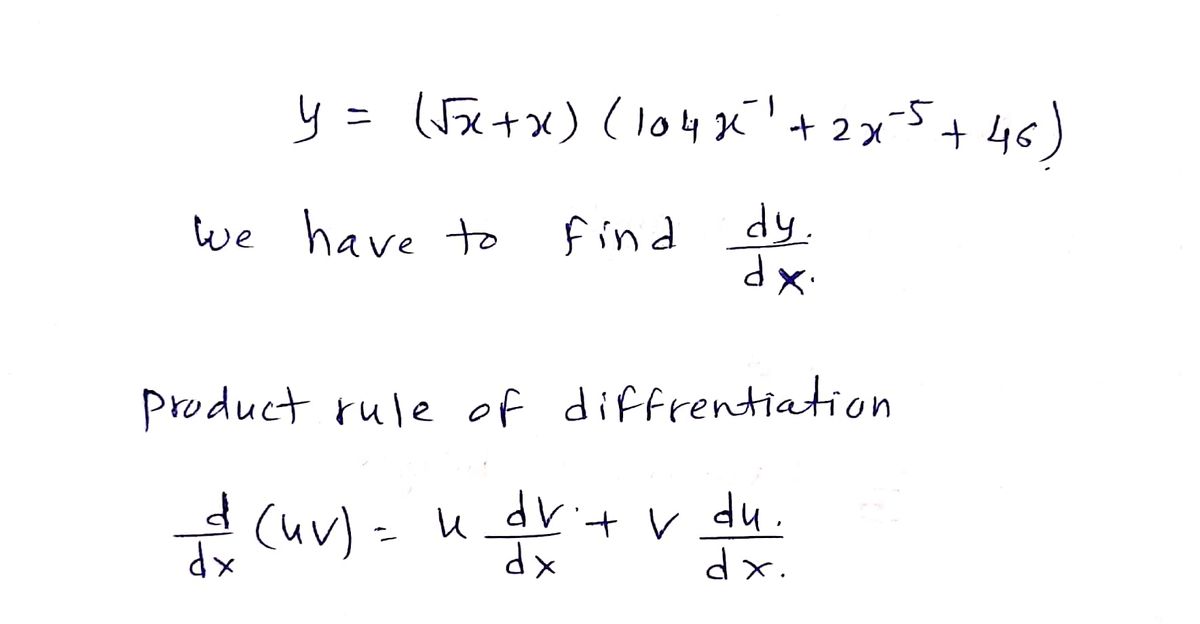 y = (√x+x) (104x⁻¹ + 2x⁻⁵ + 46)
We have to find dy/dx.
product rule of diffrentiation
d/dx (uv) = u dv/dx + v du/dx.